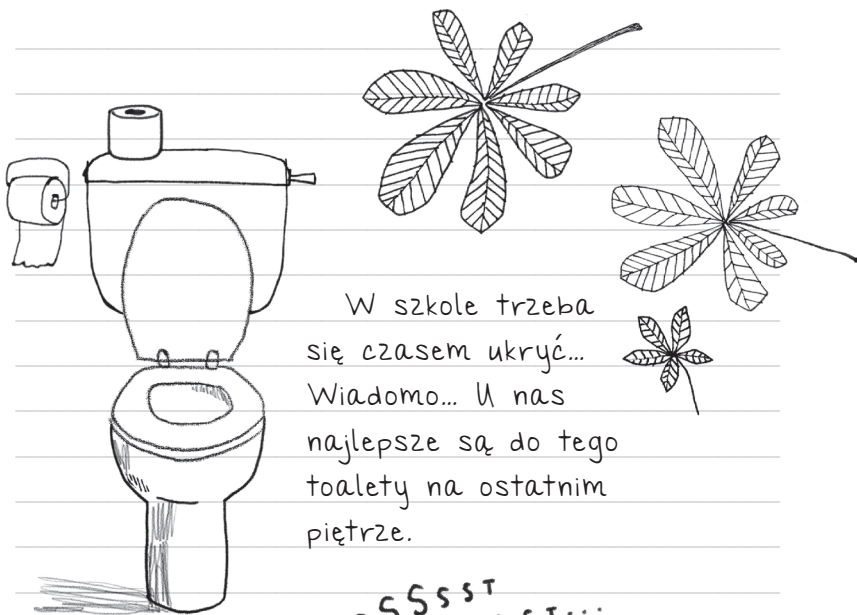 W szkole trzeba
się czasem ukryć...
Wiadomo... U nas
najlepsze są do tego
toalety na ostatnim
piętrze.